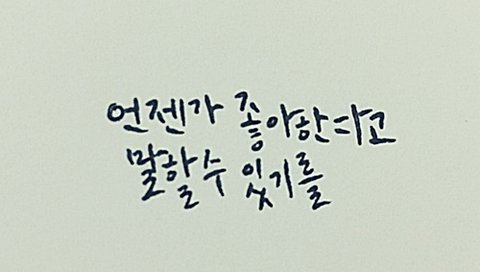 언젠가 좋아한다고
말할 수 있기를